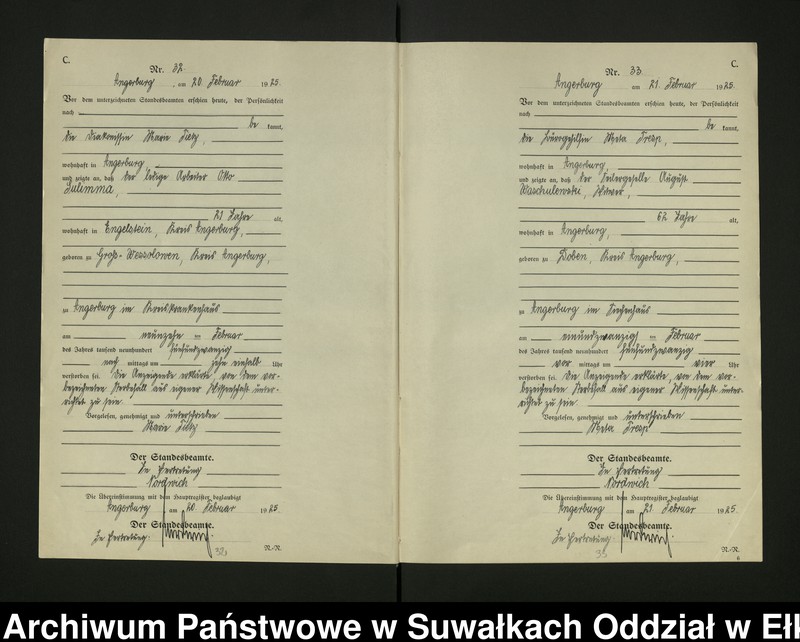 C.
Nr. 32.
Angerburg, am 20. Februar 1925.
Vor dem unterzeichneten Standesbeamten erschien heute, der Persönlichkeit
nach
be kannt,
die Diakonissin Marie
wohnhaft in Angerburg,
und zeigte an, daß der ledige Arbeiter Otto
Sulimma,
21 Jahre alt,
wohnhaft in Engelstein, Kreis Angerburg,
geboren zu Groß-Wessolowen, Kreis Angerburg,
zu Angerburg im Kreiskrankenhaus
am neunzehn ten Februar
des Jahres tausend neunhundert fünfundzwanzig
nach mittags um zehn einhalb Uhr
verstorben sei. Die Anzeigende erklärte, von dem vor-
bezeichneten Sterbefall aus eigener Wissenschaft unter-
richtet zu sein.
Vorgelesen, genehmigt und unterschrieben
Marie
Der Standesbeamte.
In Vertretung
Nordwich
Die Übereinstimmung mit dem Hauptregister beglaubigt
Angerburg am 20. Februar 1925.
Der Standesbeamte.
In Vertretung:
32,
N.-N.
C.
Nr. 33.
Angerburg am 21. Februar 1925.
Vor dem unterzeichneten Standesbeamten erschien heute, der Persönlichkeit
nach
be kannt,
die Bürogehilfin Meta
wohnhaft in Angerburg,
und zeigte an, daß der Seilergeselle August
Waschulewski, Witwer,
62 Jahre alt,
wohnhaft in Angerburg,
geboren zu Doben, Kreis Angerburg,
zu Angerburg im Siechenhaus
am einundzwanzig ten Februar
des Jahres tausend neunhundert fünfundzwanzig
vor mittags um vier Uhr
verstorben sei. Die Anzeigende erklärte, von dem vor-
bezeichneten Sterbefall aus eigener Wissenschaft unter-
richtet zu sein.
Vorgelesen, genehmigt und unterschrieben
Meta
Der Standesbeamte.
In Vertretung
Nordwich
Die Übereinstimmung mit dem Hauptregister beglaubigt
Angerburg am 21. Februar 1925.
Der Standesbeamte.
In Vertretung:
33
N.-N.
6
Archiwum Państwowe w Suwałkach Oddział w Eł